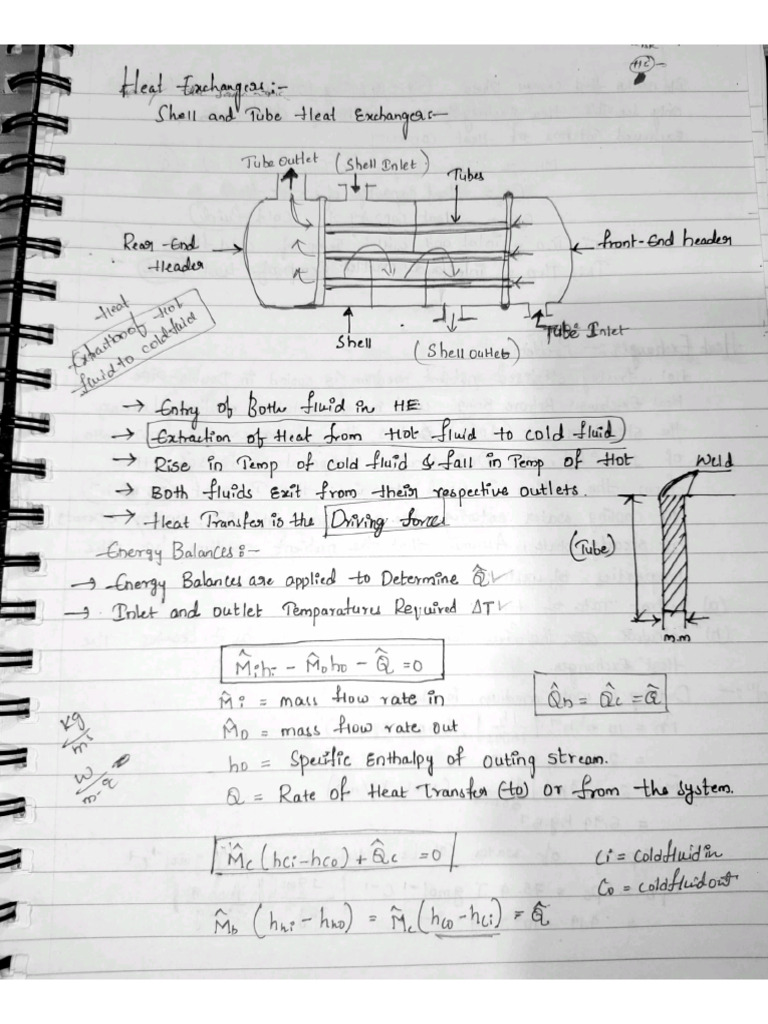 HE
Heat Exchangers:-
Shell and Tube Heat Exchangers:-
Tube Outlet (Shell Inlet)
Tubes
Rear-End Header
front-End header
Shell
(Shell outlet)
Tube Inlet
Heat
Extraction of Hot
fluid to cold fluid
→ Entry of Both fluid in HE
→ Extraction of Heat from Hot fluid to cold fluid
→ Rise in Temp of cold fluid & fall in Temp of Hot
→ Both fluids Exit from their respective outlets.
→ Heat Transfer is the Driving force
Weld
(Tube)
m.m
Energy Balances:-
→ Energy Balances are applied to Determine Q̂ ✓
→ Inlet and outlet Temparatures Required ΔT ✓
M̂ihi - M̂oho - Q̂ = 0
M̂i = mass flow rate in
Q̂h = Q̂c = Q̂
M̂o = mass flow rate out
ho = Specific Enthalpy of outing stream.
Q = Rate of Heat Transfer (to) or from the system.
kg/m³
M̂c (hci-hco) + Q̂c = 0
Ci = Cold fluid in
Co = Cold fluid out
M̂h (hhi - hho) = M̂c (hco - hci) = Q̂